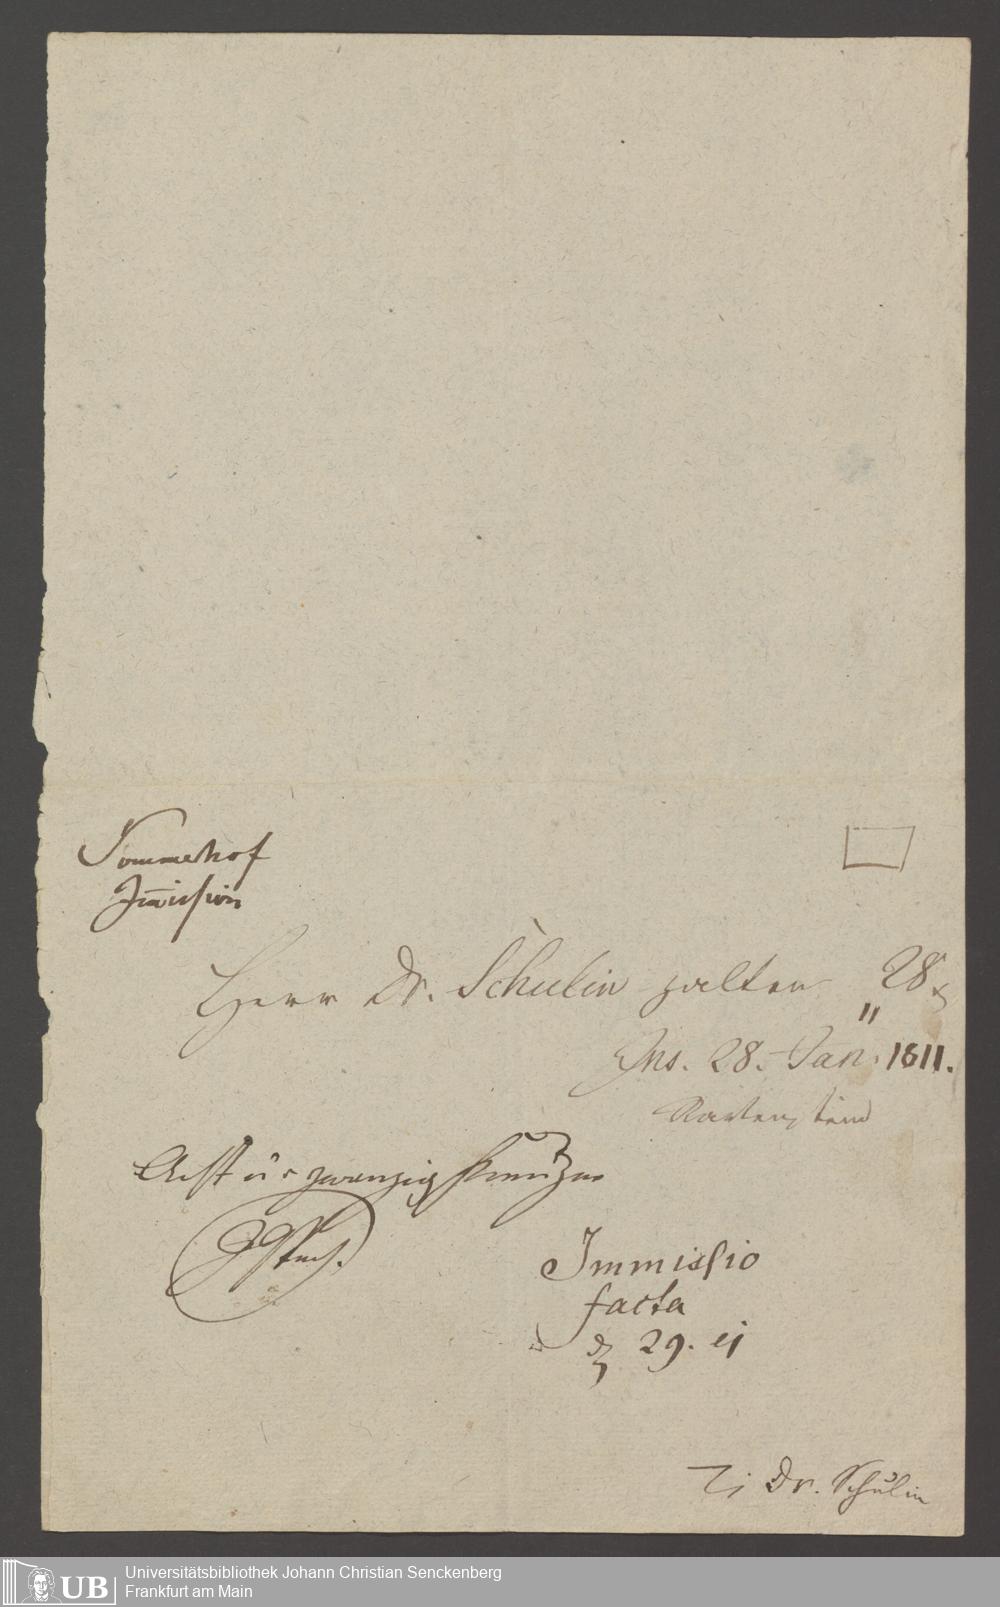 Sommerhof
Im̄ission
Herr Dr. Schulin zalten 28 x
Ins. 28. Jan. 1811.
Acht u. zwanzig Kreuzer
Immissio
facta
d 29. ej
Dr. Schulin
UB Universitätsbibliothek Johann Christian Senckenberg
Frankfurt am Main